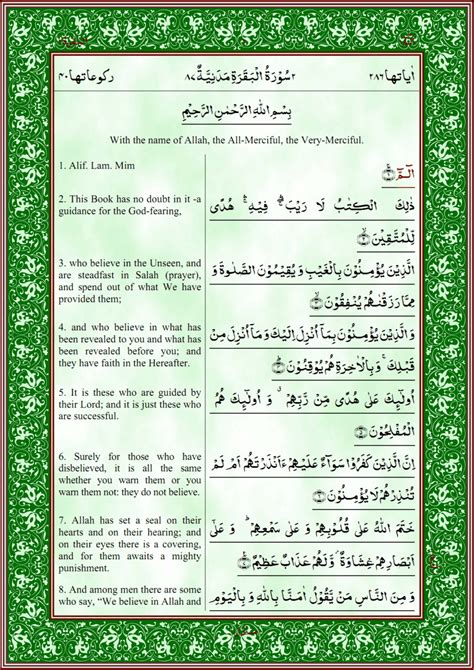 اٰیاتها ۲۸۶ ۲ سُوْرَةُ الْبَقَرَةِ مَدَنِیَّةٌ ۸۷ رکوعاتها ۴۰
بِسْمِ اللّٰهِ الرَّحْمٰنِ الرَّحِیْمِ
With the name of Allah, the All-Merciful, the Very-Merciful.
1. Alif. Lam. Mim
الٓـمّٓ ۚ‏﴿۱﴾
2. This Book has no doubt in it -a
guidance for the God-fearing,
ذٰلِكَ الْکِتٰبُ لَا رَیْبَ ۛۖ فِیْهِ ۛۚ هُدًی
لِّلْمُتَّقِیْنَ ۙ﴿۲﴾
3. who believe in the Unseen, and
are steadfast in Salah (prayer),
and spend out of what We have
provided them;
الَّذِیْنَ یُؤْمِنُوْنَ بِالْغَیْبِ وَ یُقِیْمُوْنَ الصَّلٰوةَ وَ
مِمَّا رَزَقْنٰهُمْ یُنْفِقُوْنَ ۙ﴿۳﴾
4. and who believe in what has
been revealed to you and what has
been revealed before you; and
they have faith in the Hereafter.
وَ الَّذِیْنَ یُؤْمِنُوْنَ بِمَاۤ اُنْزِلَ اِلَیْكَ وَ مَاۤ اُنْزِلَ مِنْ
قَبْلِكَ ۚ وَ بِالْاٰخِرَةِ هُمْ یُوْقِنُوْنَ ؕ﴿۴﴾
5. It is these who are guided by
their Lord; and it is just these who
are successful.
اُولٰٓئِكَ عَلٰی هُدًی مِّنْ رَّبِّهِمْ ٭ وَ اُولٰٓئِكَ هُمُ
الْمُفْلِحُوْنَ ﴿۵﴾
6. Surely for those who have
disbelieved, it is all the same
whether you warn them or you
warn them not: they do not believe.
اِنَّ الَّذِیْنَ کَفَرُوْا سَوَآءٌ عَلَیْهِمْ ءَاَنْذَرْتَهُمْ اَمْ لَمْ
تُنْذِرْهُمْ لَا یُؤْمِنُوْنَ ﴿۶﴾
7. Allah has set a seal on their
hearts and on their hearing; and
on their eyes there is a covering,
and for them awaits a mighty
punishment.
خَتَمَ اللّٰهُ عَلٰی قُلُوْبِهِمْ وَ عَلٰی سَمْعِهِمْ ؕ وَ عَلٰۤی
اَبْصَارِهِمْ غِشَاوَةٌ ۫ وَّ لَهُمْ عَذَابٌ عَظِیْمٌ ﴿۷﴾
8. And among men there are some
who say, “We believe in Allah and
وَ مِنَ النَّاسِ مَنْ یَّقُوْلُ اٰمَنَّا بِاللّٰهِ وَ بِالْیَوْمِ